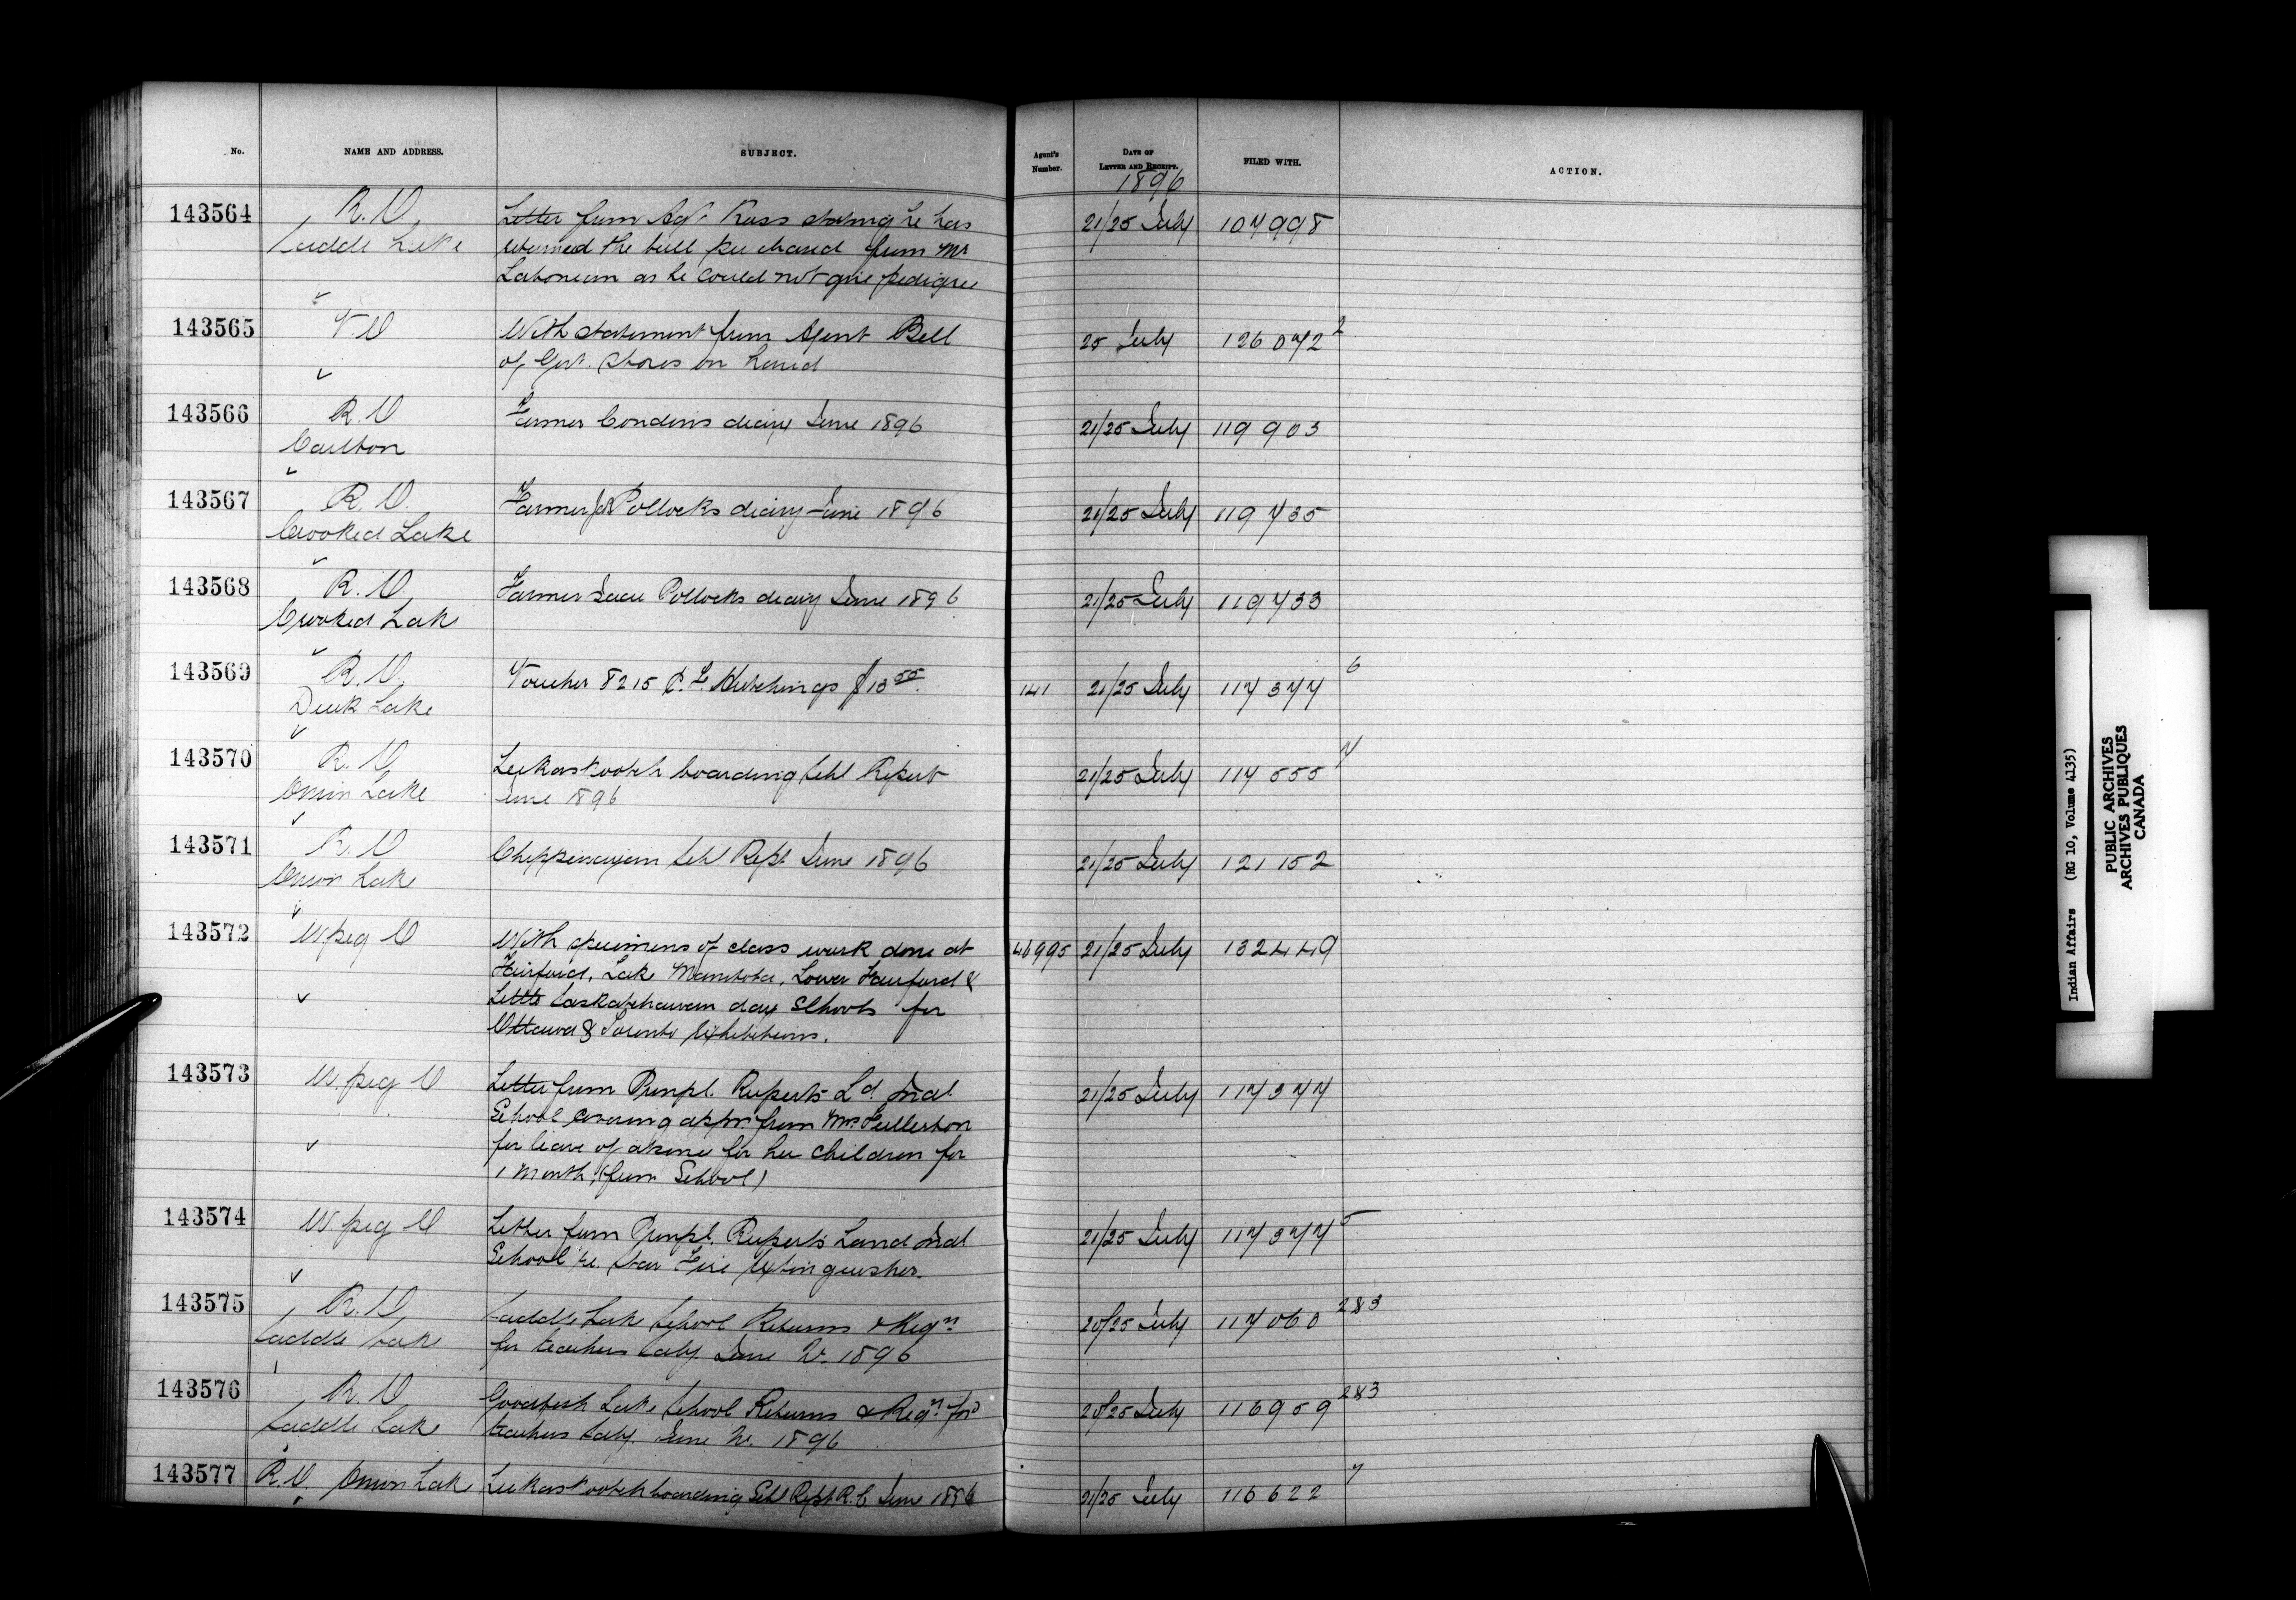 No. NAME AND ADDRESS. SUBJECT. Agent's Number. DATE OF LETTER AND RECEIPT. FILED WITH. ACTION.
1896
143564 R.O. Letter from Agt. Ross stating he has 21/25 July 107998
Saddle Lake returned the bull purchased from Mr
as he could not give pedigree
143565 With statement from Agent Bell 25 July 126072 2
of Govt. Stores on hand
143566 R.O Farmer diary June 1896 21/25 July 119903
Carlton
143567 R.O. Farmer Pollocks diary June 1896 21/25 July 119735
Crooked Lake
143568 R.O. Farmer Pollocks diary June 1896 21/25 July 119733
Crooked Lake
143569 R.O. Voucher 8215 Hutchings $13 141 21/25 July 117377 6
Duck Lake
143570 R.O. boarding Schl Report 21/25 July 117555 7
Onion Lake June 1896
143571 R.O Chippewayan Schl Rept. June 1896 21/25 July 121152
Onion Lake
143572 W.peg O With specimens of class work done at 46995 21/25 July 132449
Fairford, Lake Manitoba, Lower Fairford &
Little Saskatchewan day Schools for
Ottawa & Toronto Exhibitions.
143573 W.peg O Letter from Prinpl. Ruperts Ld. Indl. 21/25 July 117377
School covering appn. from Mrs Fullerton
for leave of absence for her children for
1 month, (from School)
143574 W peg O Letter from Prinpl. Ruperts Land Indl 21/25 July 117377 5
School re. Star Fire Extinguisher.
143575 R.O. Saddle Lake School Returns & Reqn 20/25 July 117060 2&3
Saddle Lake for teachers Saly. June Qr. 1896
143576 R.O Goodfish Lake School Returns & Reqn. for 20/25 July 116959 2&3
Saddle Lake teachers Saly. June Qr. 1896
143577 R.O. Onion Lake boarding Schl Rept R.C. June 1896 21/25 July 116622 7
Indian Affairs (RG 10, Volume 4135)
PUBLIC ARCHIVES
ARCHIVES PUBLIQUES
CANADA